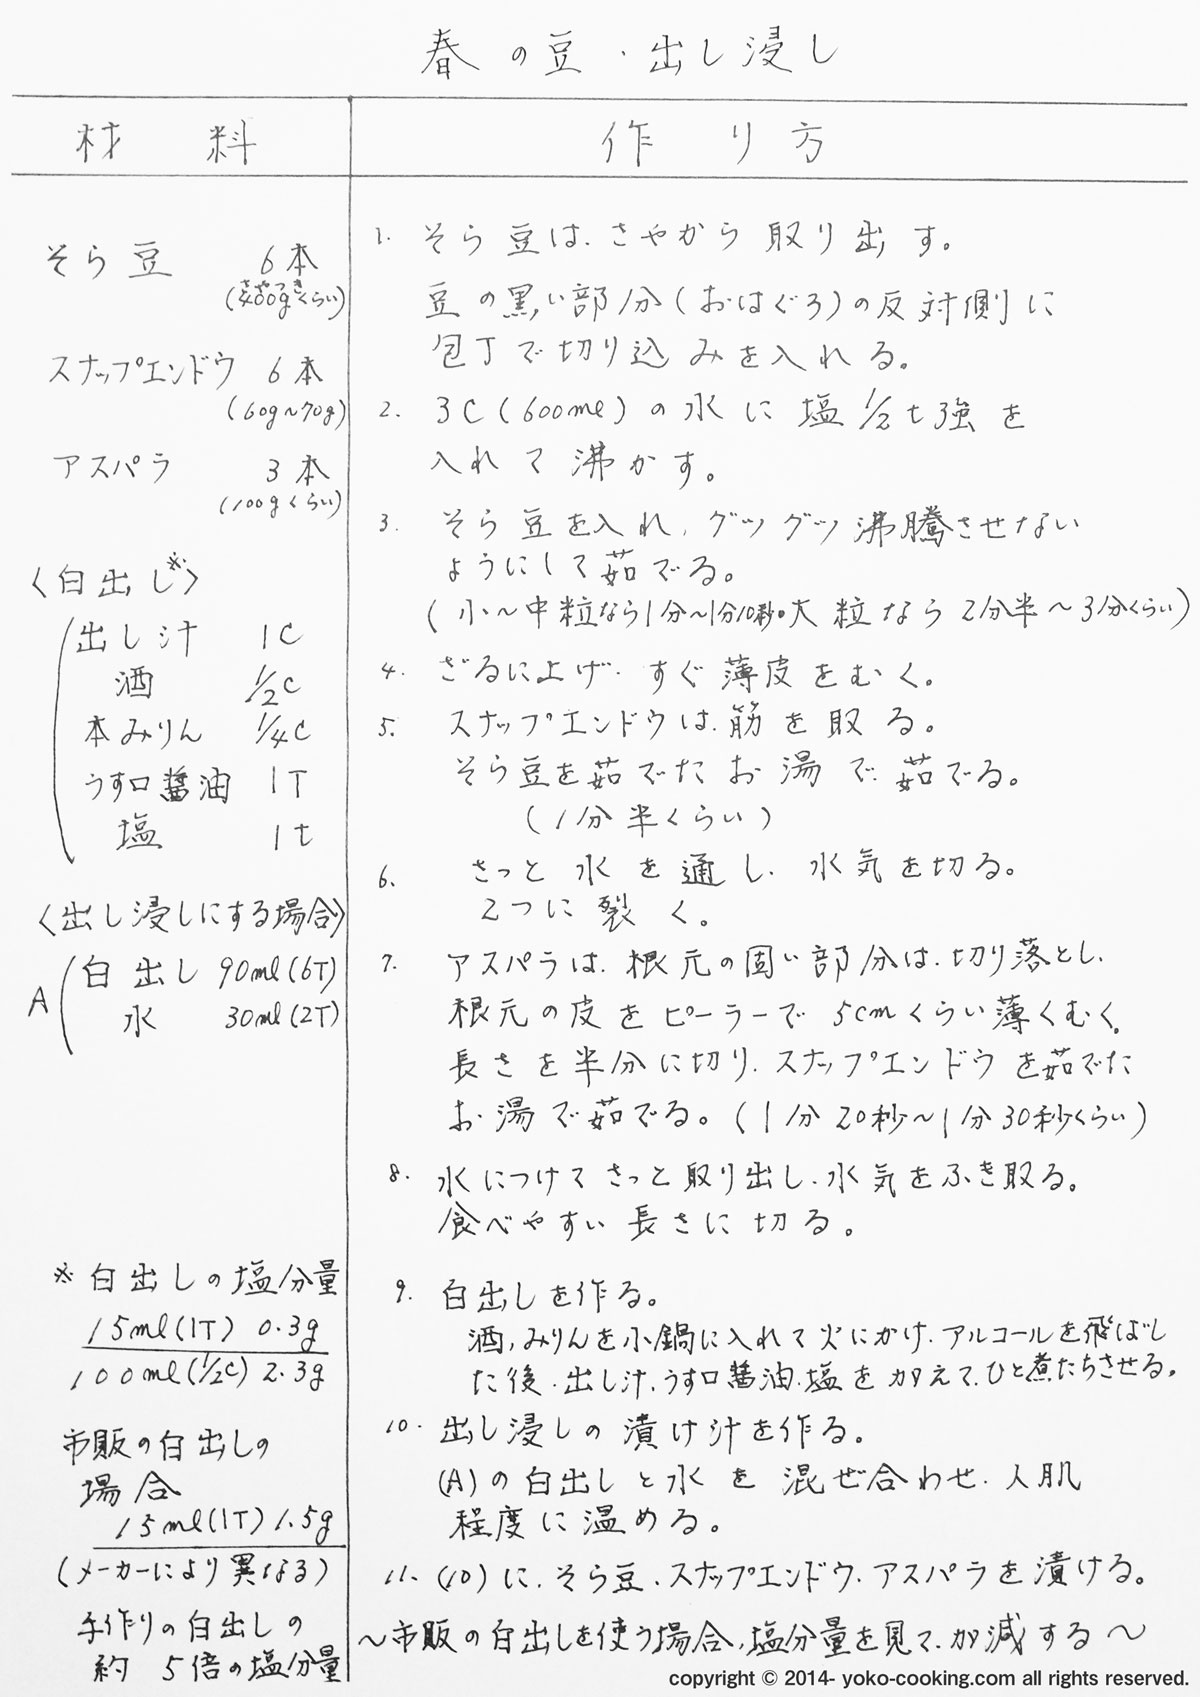 春の豆・出し浸し
材料
作り方
そら豆 6本
(さやつき400gくらい)
スナップエンドウ 6本
(60g〜70g)
アスパラ 3本
(100gくらい)
〈白出し※〉
出し汁 1C
酒 1/2C
本みりん 1/4C
うす口醤油 1T
塩 1t
〈出し浸しにする場合〉
A
白出し 90ml(6T)
水 30ml(2T)
※白出しの塩分量
15ml(1T) 0.3g
100ml(1/2C) 2.3g
市販の白出しの
場合
15ml(1T) 1.5g
(メーカーにより異なる)
手作りの白出しの
約 5倍の塩分量
1. そら豆は、さやから取り出す。
豆の黒い部分(おはぐろ)の反対側に
包丁で切り込みを入れる。
2. 3C(600ml)の水に塩1/2t強を
入れて沸かす。
3. そら豆を入れ、グツグツ沸騰させない
ようにして茹でる。
(小〜中粒なら1分〜1分10秒。大粒なら2分半〜3分くらい)
4. ざるに上げ、すぐ薄皮をむく。
5. スナップエンドウは、筋を取る。
そら豆を茹でたお湯で、茹でる。
(1分半くらい)
6. さっと水を通し、水気を切る。
2つに裂く。
7. アスパラは、根元の固い部分は、切り落とし、
根元の皮をピーラーで5cmくらい薄くむく。
長さを半分に切り、スナップエンドウを茹でた
お湯で茹でる。(1分20秒〜1分30秒くらい)
8. 水につけてさっと取り出し、水気をふき取る。
食べやすい長さに切る。
9. 白出しを作る。
酒、みりんを小鍋に入れて火にかけ、アルコールを飛ばし
た後、出し汁、うす口醤油、塩を加えて、ひと煮たちさせる。
10. 出し浸しの漬け汁を作る。
(A)の白出しと水を混ぜ合わせ、人肌
程度に温める。
11. (10)に、そら豆、スナップエンドウ、アスパラを漬ける。
〜市販の白出しを使う場合、塩分量を見て、加減する〜
copyright © 2014- yoko-cooking.com all rights reserved.